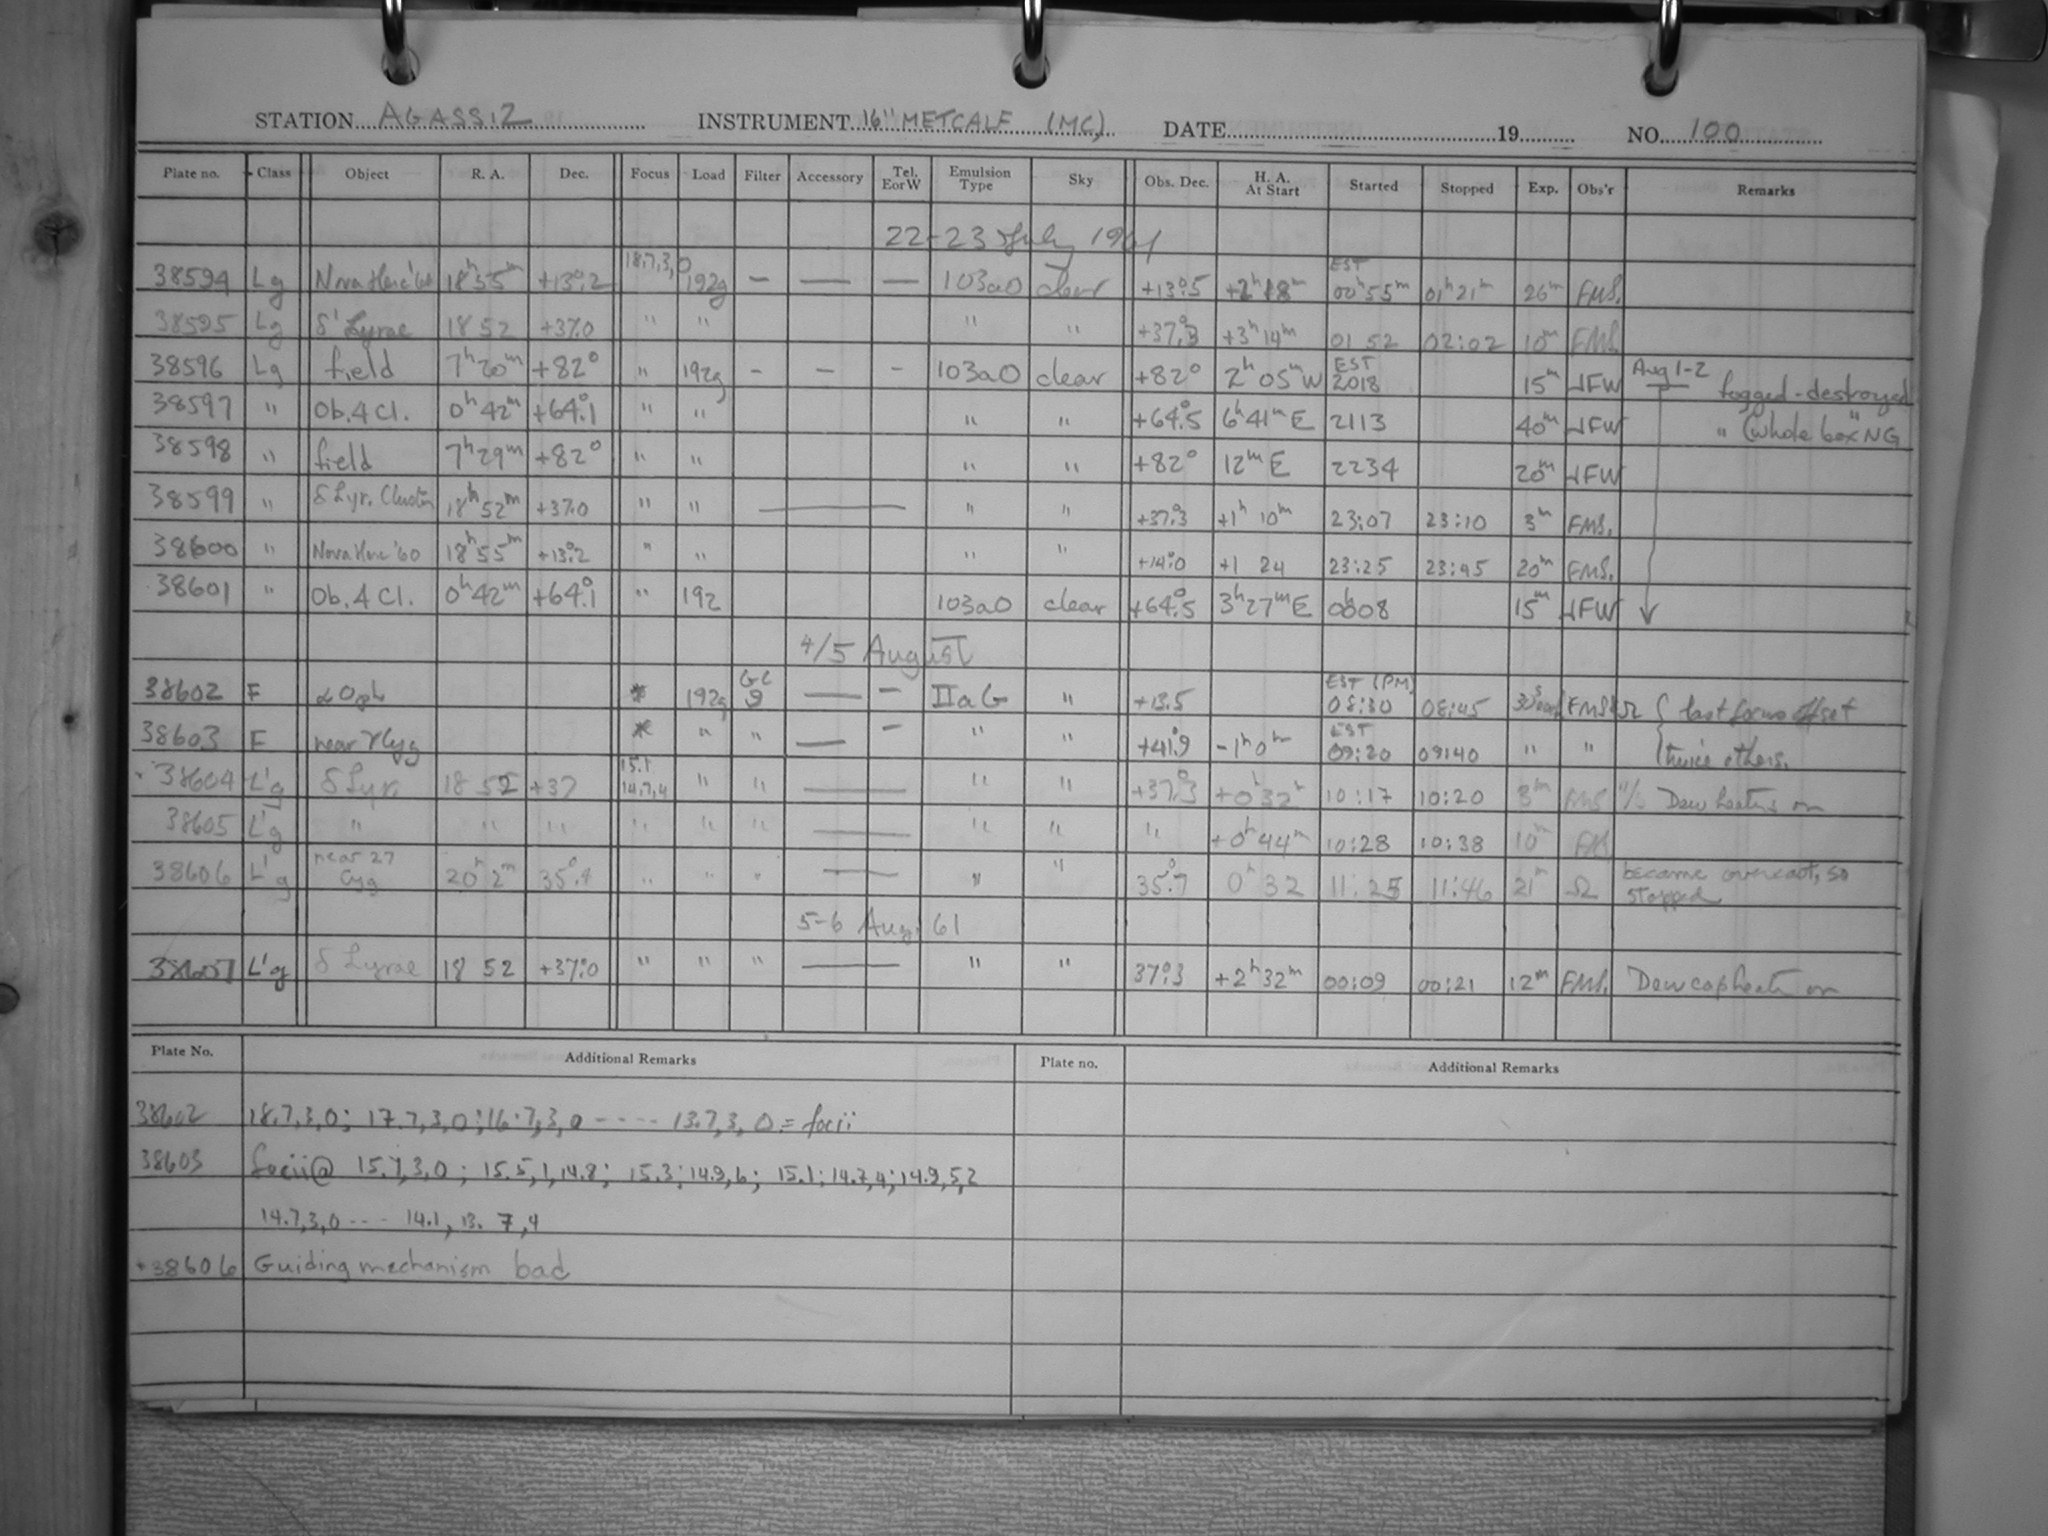 STATION AGASSIZ INSTRUMENT 16" METCALF (MC) DATE 19 NO. 100
Plate no. Class Object R. A. Dec. Focus Load Filter Accessory Tel. E or W Emulsion Type Sky Obs. Dec. H. A. At Start Started Stopped Exp. Obs'r Remarks
22-23 July 1961
38594 Lg Nova Herc '60 18h 55m +13°.2 18.7,3,0 192g — — — 103a0 clear +13°.5 +2h 18m EST 00h 55m 01h 21m 26m FMS.
38595 Lg δ' Lyrae 18 52 +37.0 " " " " +37°.3 +3h 14m 01 52 02:02 10m FMS.
38596 Lg field 7h 20m +82° " 192g - - - 103a0 clear +82° 2h 05m W EST 2018 15m JFW Aug 1-2 fogged-destroyed
38597 " Ob. 4 Cl. 0h 42m +64°.1 " " " " +64°.5 6h 41m E 2113 40m JFW " (whole box" NG
38598 " field 7h 29m +82° " " " " +82° 12m E 2234 20m JFW
38599 " δ Lyr. Cluster 18h 52m +37.0 " " — " " +37°.3 +1h 10m 23:07 23:10 3m FMS.
38600 " Nova Herc '60 18h 55m +13°.2 " " " " +14.0 +1 24 23:25 23:45 20m FMS.
38601 " Ob. 4 Cl. 0h 42m +64°.1 " 192 103a0 clear +64°.5 3h 27m E 0h08 15m JFW
4/5 August
38602 F α Oph * 192g GC 9 — - IIaG " +13.5 EST (PM) 08:30 08:45 FMS Ω { last for offset
38603 F near γ Cyg * " " — - " " +41.9 -1h 0m EST 09:20 09:40 " " { twice others.
38604 L'g δ Lyr. 18 52 +37 15.1 14.7,4 " " — " " +37°.3 +0h 32m 10:17 10:20 3m FMS Dew heaters on
38605 L'g " " " " " " — " " " +0h 44m 10:28 10:38 10m FMS
38606 L'g near 27 Cyg 20h 2m 35°.4 " " " — " " 35°.7 0h 32 11:25 11:46 21m Ω became overcast, so stopped
5-6 Aug. 61
38607 L'g δ Lyrae 18 52 +37°.0 " " " — " " 37°.3 +2h 32m 00:09 00:21 12m FMS. Dewcap heater on
Plate No. Additional Remarks Plate no. Additional Remarks
38602 18.7,3,0; 17.7,3,0; 16.7,3,0 ---- 13.7,3,0 = focii
38603 focii @ 15.7,3,0; 15.5,1,14.8; 15.3; 14.9,6; 15.1; 14.7,4; 14.9,5,2
14.7,3,0 --- 14.1, 13. 7,4
+38606 Guiding mechanism bad